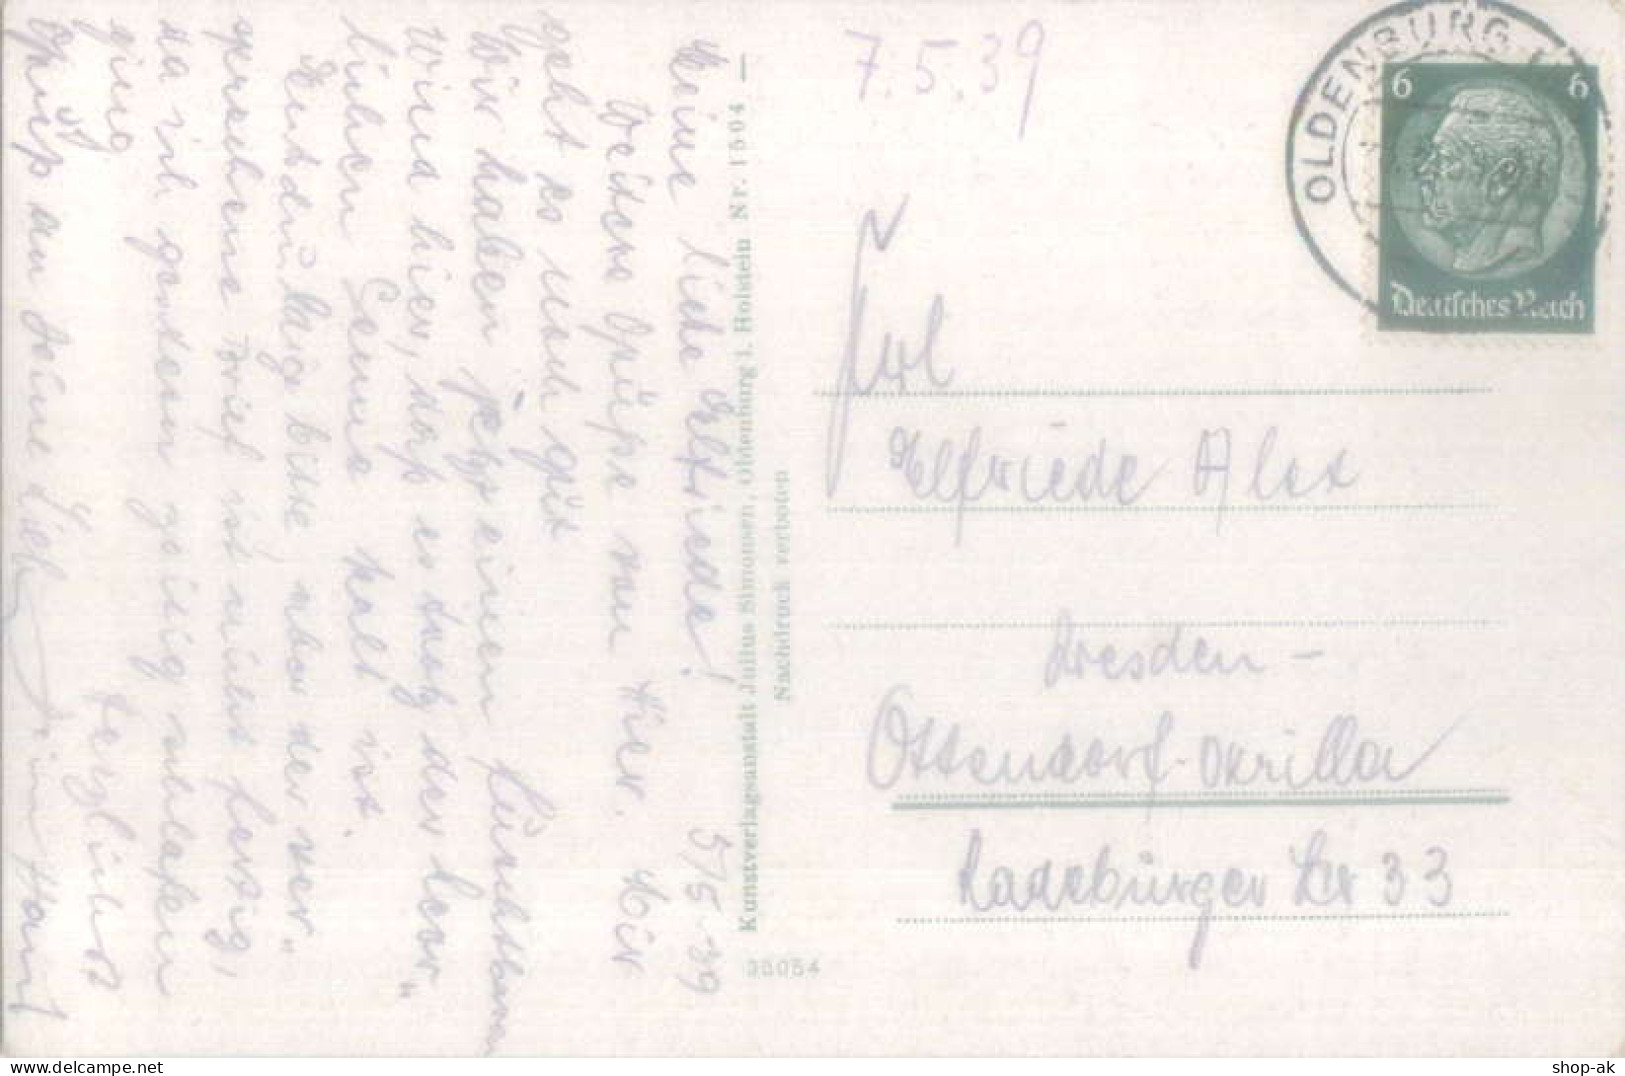 7.5.39
OLDENBURG
6 6
Deutsches Reich
Frl
Elfriede
Dresden-
Ottendorf-Okrilla
Radeburger Str 33
Kunstverlagsanstalt Julius Simonsen, Oldenburg i. Holstein Nr. 1504
Nachdruck verboten
36054
Meine liebe Elfriede! 5/5.39
Weitere Grüße von hier. Mir
geht es noch gut
Wir haben jetzt einen furchtbaren
Wind hier, daß es trotz der herr„
lichen Sonne kalt ist.
Entschuldige bitte, aber der ver„
sprochene Brief ist nicht fertig,
da ich gestern zeitig schlafen
ging Herzlichst
Gruß an Deine Dein Hans
shop-ak